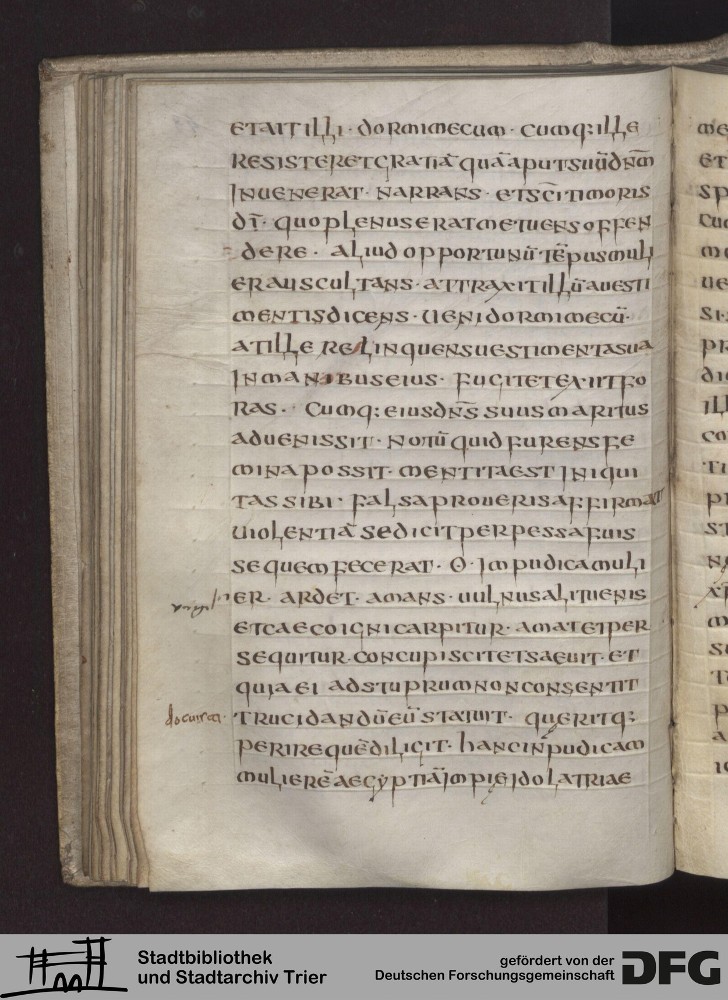 ETAITILLI · DORMIMECUM · CUMQ:ILLE
RESISTERETGRATIĀ QUĀAPUTSUŪDN̄M
INUENERAT · NARRANS · ETSC̄ITIMORIS
DĪ · QUOPLENUSERATMETUENSOFFEN
DERE · ALIUDOPPORTUNŪTĒPUSMULI
ERAUSCULTANS · ATTRAXITILLŪAUESTI
MENTISDICENS · UENIDORMIMECŪ ·
ATILLERELINQUENSUESTIMENTASUA
INMANIBUSEIUS · FUGITETEXIITFO
RAS · CUMQ:EIUSDN̄SSUUSMARITUS
ADUENISSIT · NOTŪQUIDFURENSFE
MINAPOSSIT · MENTITAESTINIQUI
TASSIBI · FALSAPROUERISAFFIRMAT
UIOLENTIĀSEDICITPERPESSAFUIS
SEQUEMFECERAT · O · IMPUDICAMULI
ER · ARDET · AMANS · UULNUSALITUENIS
ETCAECOIGNICARPITUR · AMATETPER
SEQUITUR · CONCUPISCITETSAEUIT · ET
QUIAEI ADSTUPRUMNONCONSENTIT
docuirca · TRUCIDANDŪEŪSTATUIT · QUERITQ:
PERIREQUĒDILIGIT · HANCINPUDICAM
MULIERĒAEGYPTIĀIMPIEIDOLATRIAE
ME
ET
SP
CUM
UE
SI
PR
DI
ILL
CO
TI
PI
ST
Stadtbibliothek
und Stadtarchiv Trier
gefördert von der
Deutschen Forschungsgemeinschaft
DFG